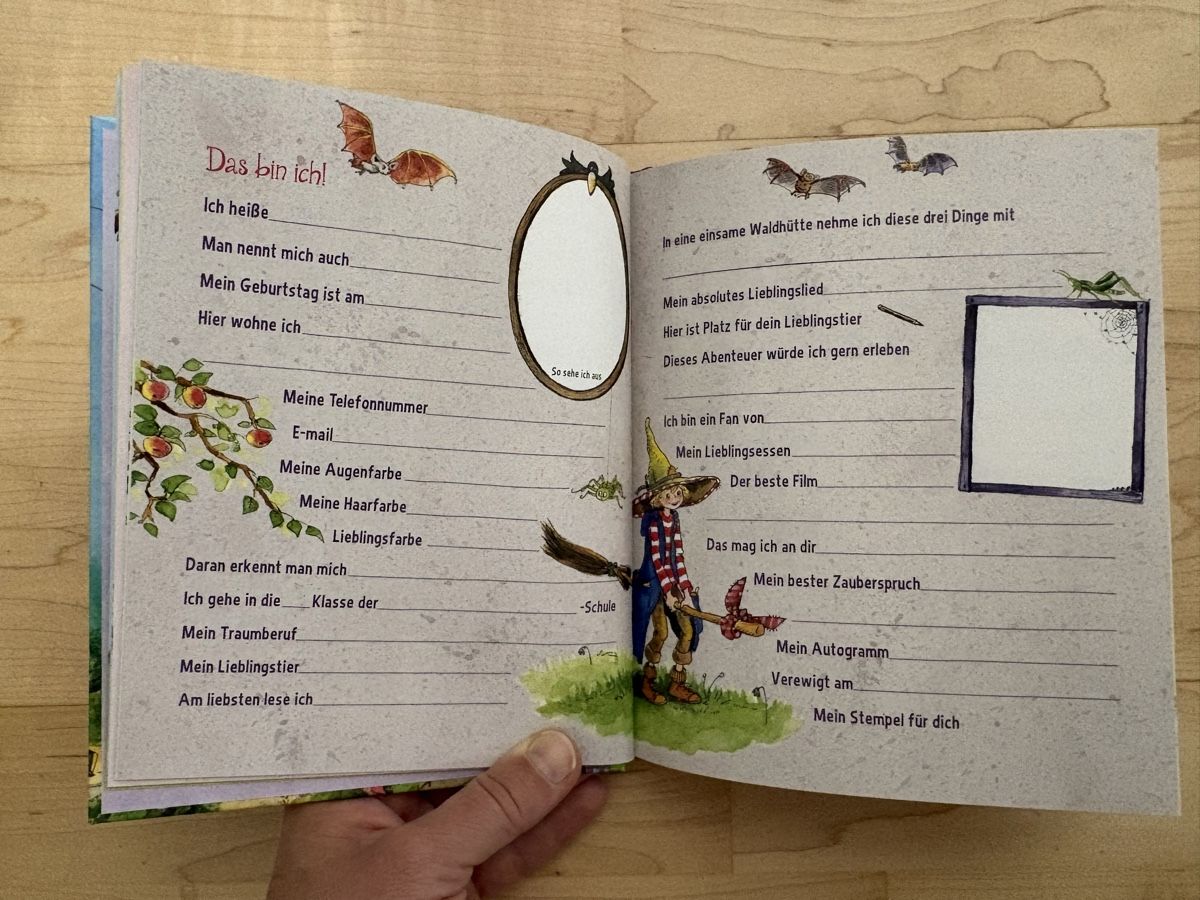 Das bin ich!
Ich heiße
Man nennt mich auch
Mein Geburtstag ist am
Hier wohne ich
So sehe ich aus
Meine Telefonnummer
E-mail
Meine Augenfarbe
Meine Haarfarbe
Lieblingsfarbe
Daran erkennt man mich
Ich gehe in die____Klasse der____-Schule
Mein Traumberuf
Mein Lieblingstier
Am liebsten lese ich
In eine einsame Waldhütte nehme ich diese drei Dinge mit
Mein absolutes Lieblingslied
Hier ist Platz für dein Lieblingstier
Dieses Abenteuer würde ich gern erleben
Ich bin ein Fan von
Mein Lieblingsessen
Der beste Film
Das mag ich an dir
Mein bester Zauberspruch
Mein Autogramm
Verewigt am
Mein Stempel für dich